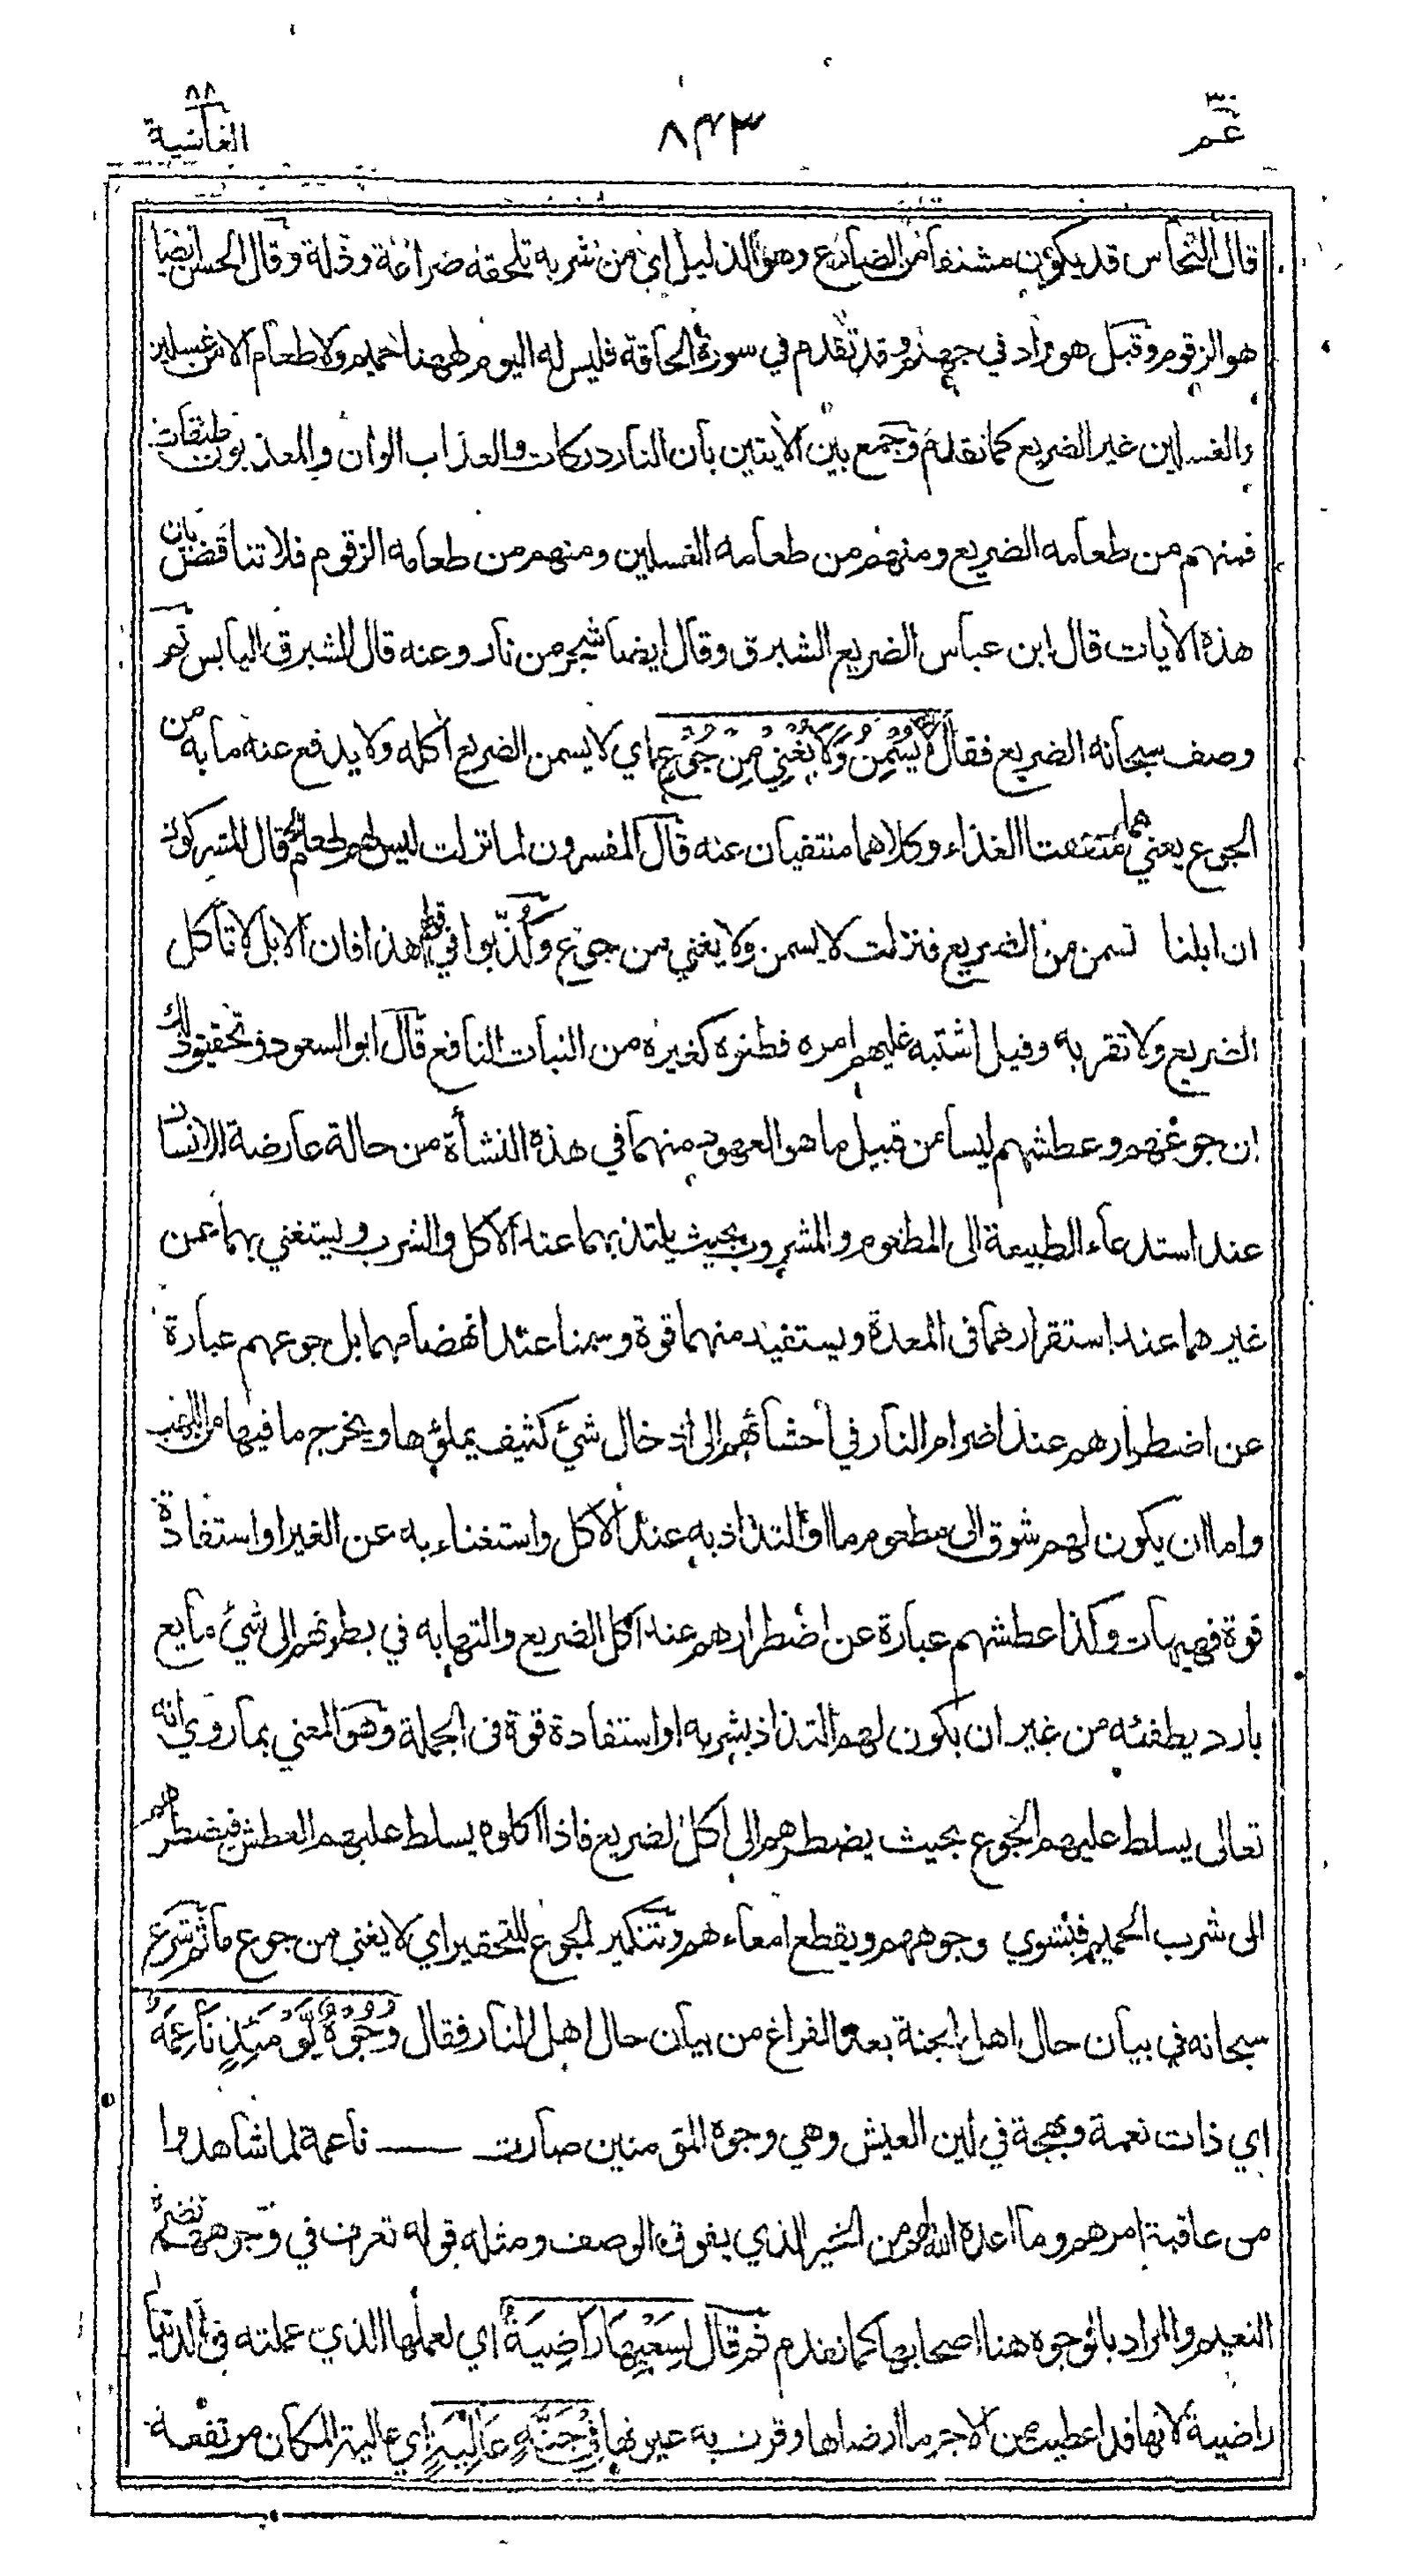 ٣٠
عم
٨٤٣
٨٨
الغاشية
قال النحاس قد يكون مشتقا من الضارع وهو الذليل اي من شربه تلحقه ضراعة وذلة وقال الحسن ايضا
هو الزقوم وقيل هو واد في جهنم وقد تقدم في سورة الحاقة فليس له اليوم ههنا حميم ولا طعام الا من غسلين
والغسلين غير الضريع كما تقدم وجمع بين الايتين بان النار دركات والعذاب الوان والمعذبون طبقات
فمنهم من طعامه الضريع ومنهم من طعامه الغسلين ومنهم من طعامه الزقوم فلا تناقض بين
هذه الايات قال ابن عباس الضريع الشبرق وقال ايضا شجر من نار وعنه قال الشبرق اليابس ثم
وصف سبحانه الضريع فقال لَا يُسْمِنُ وَلَا يُغْنِي مِنْ جُوْعٍ اي لا يسمن الضريع اكله ولا يدفع عنه ما به من
الجوع يعني هما منفعتا الغذاء وكلاهما منتفيان عنه قال المفسرون لما نزلت ليس لهم طعام الخ قال المشركون
ان ابلنا تسمن من الضريع فنزلت لا يسمن ولا يغني من جوع وكذبوا في قولهم هذا فان الابل لا تاكل
الضريع ولا تقربه وقيل اشتبه عليهم امره فظنوه كغيره من النبات النافع قال ابو السعود وتحقيق ذلك
ان جوعهم وعطشهم ليسا من قبيل ما هو المعهود منهما في هذه النشأة من حالة عارضة للانسان
عند استدعاء الطبيعة الى المطعوم والمشروب بحيث يلتذ بهما عند الاكل والشرب ويستغني بهما عن
غيرهما عند استقرارهما في المعدة ويستفيد منهما قوة وسمنا عند انهضامهما بل جوعهم عبارة
عن اضطرارهم عند اضرام النار في احشائهم الى ادخال شيء كثيف يملؤها ويخرج ما فيها من اللهب
واما ان يكون لهم شوق الى مطعوم ما او التذاذ به عند الاكل واستغناء به عن الغير او استفادة
قوة فهيهات وكذا عطشهم عبارة عن اضطرارهم عند اكل الضريع والتهابه في بطونهم الى شيء مايع
بارد يطفئه من غير ان يكون لهم التذاذ بشربه او استفادة قوة في الجملة وهو المعني بما روي انه
تعالى يسلط عليهم الجوع بحيث يضطرهم الى اكل الضريع فاذا اكلوه يسلط عليهم العطش فيضطرهم
الى شرب الحميم فيشوي وجوههم ويقطع امعاءهم وتنكير الجوع للتحقير اي لا يغني من جوع ما ثم شرع
سبحانه في بيان حال اهل الجنة بعد الفراغ من بيان حال اهل النار فقال وُجُوْهٌ يَّوْمَئِذٍ نَّاعِمَةٌ
اي ذات نعمة وبهجة في لين العيش وهي وجوه المؤمنين صارت ناعمة لما شاهدوا
من عاقبة امرهم وما اعده الله لهم من الخير الذي يفوق الوصف ومثله قوله تعرف في وجوههم نضرة
النعيم والمراد بالوجوه هنا اصحابها كما تقدم ثم قال لِسَعْيِهَا رَاضِيَةٌ اي لعملها الذي عملته في الدنيا
راضية لانها قد اعطيت من الاجر ما ارضاها وقرت به عيونها فِيْ جَنَّةٍ عَالِيَةٍ اي عالية المكان مرتفعة